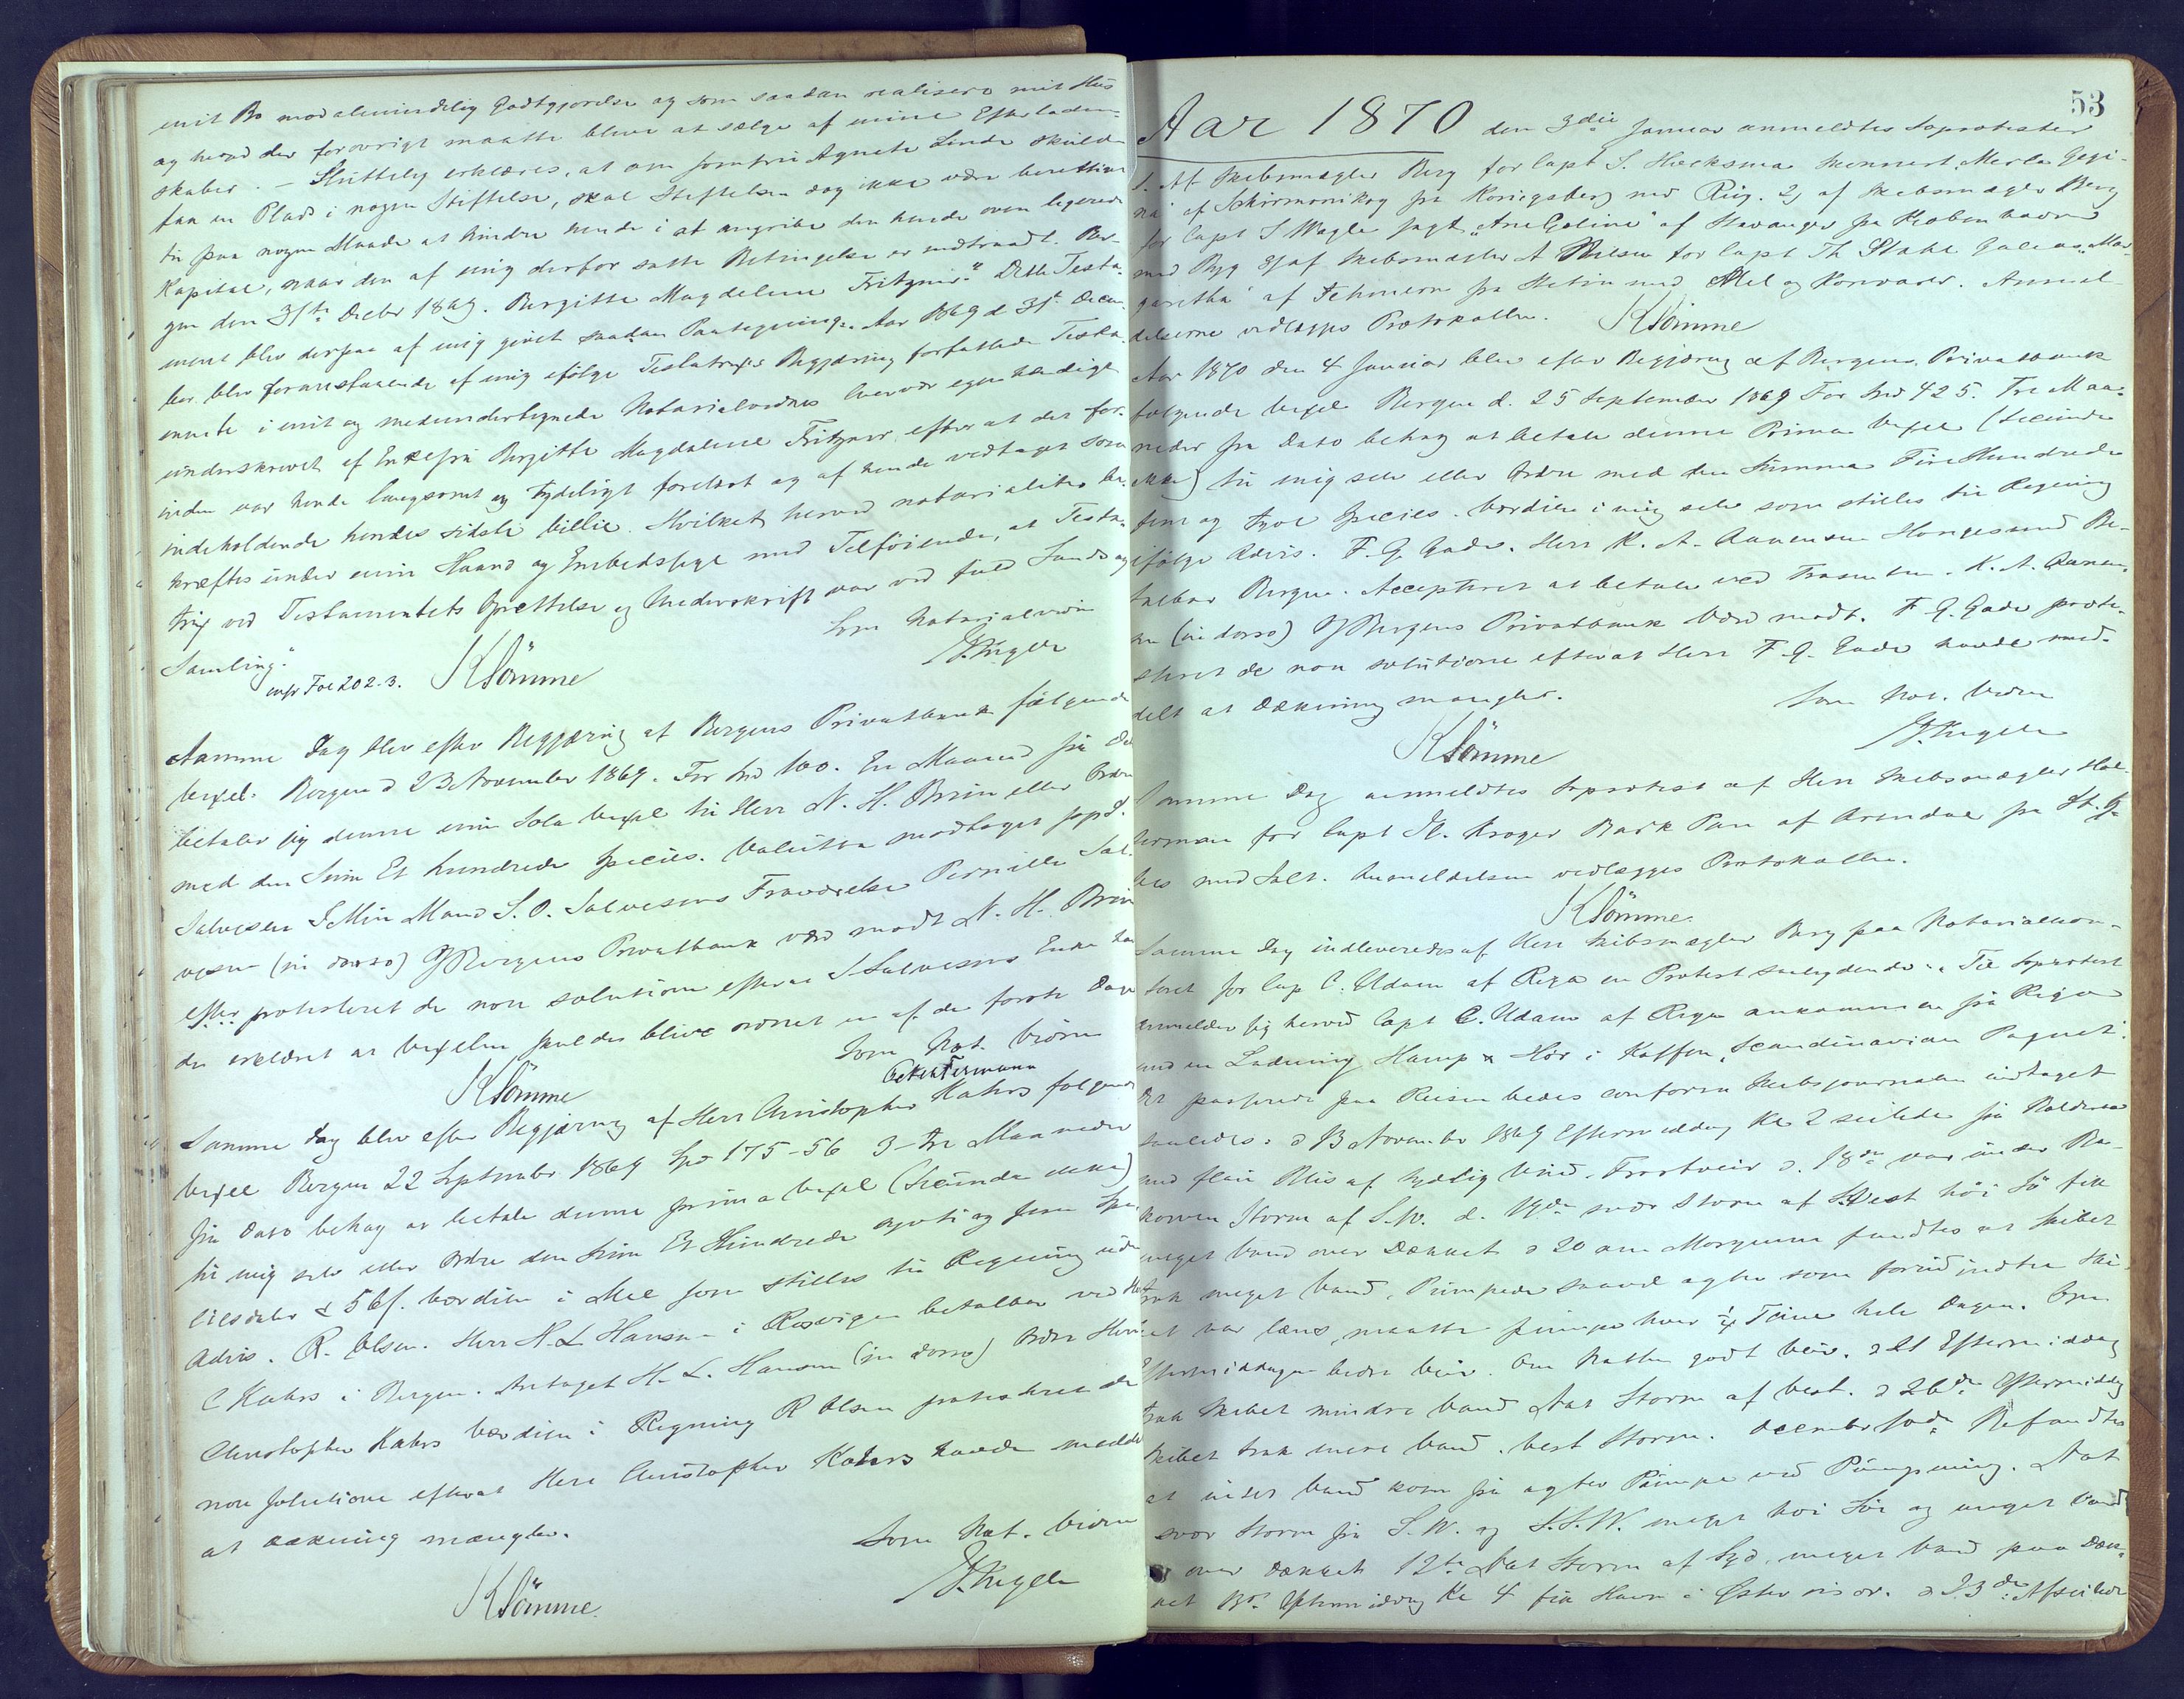 mit Bo mod alminderlig Godtgjørelse og som saadan realisere mit Hus
og hvad der forøvrigt maatte blive at sælge af mine Efterladen-
skaber. – Sluttelig erklæres, at om Jomfru Agnete Linde skulde
faa en Plads i nogen Stiftelse, skal Stiftelsen dog ikke være berettiget
til paa nogen Maade at hindre hende i at angribe den hende oven legerede
Kapital, naar den af mig derfor satte Betingelse er indtraadt. Ber-
gen den 31te Decbr 1869. Birgitte Magdelene Fritzner." Dette Testa-
ment blev derpaa af mig givet saadan Paategning. Aar 1869 d 31te Decem-
ber blev foranstaaende af mig ifølge Testatrixes Begjæring forfattede Testa-
mente i mit og medundertegnede Notarialvidnes Overvær egenhændigen
underskrevet af Enkefru Birgitte Magdalene Fritzner, efter at det for-
inden var hende langsomt og tydeligt forelæst og af hende vedtaget som
indeholdende hendes sidste Villie. Hvilket herved notarialiter be-
kræftes under min Haand og Embedssegl med Tilføiende, at Testa-
trix ved Testamentets Oprettelse og Underskrift var ved fuld Sands og
Samling." Som Notarialvidne
cnfr Fol 202-3. KLömme J. Krygll
Samme Dag blev efter Begjæring af Bergens Privatbank følgende
Vexel. Bergen d 23 November 1869. For Spd 100. En Maaned fra Da
betaler jeg denne min Sola Vexel til Herr N. H. Bruun eller Ordre
med den Sum Et hundrede Species. Valutta modtaget
Salvesen I Min Mand S. O. Salvesens Fraværelse Pernille Sal-
vesen (in dorso) Bergens Privatbank værd modt N. H. Bruun
efter protesteret de non solutione efterat S Salvesens Enke hav
de erklæret at Vexelen skulde blive ordnet en af de første Dage
KLömme Som Not. Vidne
Ackermann
Samme Dag blev efter Begjæring af Herr Christopher Kahrs følgende
Vexel Bergen 22 September 1869 Spd 175-56 3-tre Maaneder
fra Dato behag at betale denne prima Vexel (Secunda ikke)
til mig selv eller Ordre den Sum Et Hundrede sytti og fem Spe
ciesdaler & 56 s. Værdien i Mel som stilles til Regning uden
Advis. R. Olsen. Herr H. L. Hansen i Rosvigen betalbar ved Herr
C Kahrs i Bergen. Antaget H. L. Hansen (in dorso) Ordre Herr
Christopher Kahrs Værdien i Regning R Olsen protesteret de
non solutione efterat Herr Christopher Kahrs havde meddelt
at Dækning mangler.
Som Not. Vidne
KLömme. J. Krygll
53
Aar 1870 den 3die Januar anmeldtes Søprotester
1. Af Skibsmægler Berg for Capt S. Hecksma Skonnert "Maria Gegi-
na" af Schirmonikog fra Königsberg med Rug. 2) af Skibsmægler Berg
for Capt S Wagle Jagt "Ane Goline" af Stavanger fra Kjøbenhavn
med Byg 3) af Skibsmægler A Nielsen for Capt Th Stahl Galeas "Mar-
garetha" af Fehmern fra Stetin med Mel og Kornvarer. Anmel-
delserne vedlægges Protokollen. KLömme
Aar 1870 den 4 Januar blev efter Begjæring af Bergens Privatbank
følgende Vexel Bergen d. 25 September 1869 For Spd 425. Tre Maa-
neder fra Dato behag at betale denne Prima Vexel (Secunda
ikke) til mig selv eller Ordre med den Summa Fire Hundrede
fem og tyve Species. Værdien i mig selv som stilles til Regning
ifølge Advis. F. G. Gade. Herr K. A. Aanensen Haugesund Be-
talbar Bergen. Accepteret at betale ved Trasenten. K. A. Aanen-
sen (in dorso) Bergens Privatbank Værd modt. F. G. Gade prote-
steret de non solutione efterat Herr F. G. Gade havde med-
delt at Dækning mangler. Som Not. Vidne
KLömme J. Krygll
Samme Dag anmeldtes Søprotest af Herr Skibsmægler Hal-
vorsen for Capt H. Kroger Bark Pan af Arendal fra St. Y-
bes med Salt. Anmeldelsen vedlægges Protokollen.
KLömme.
Samme Dag indleveredes af Herr Skibsmægler Berg paa Notarialkon-
toret for Cap C. Udam af Riga en Protest saalydende: "Til Søprotest
anmelder sig herved Capt C. Udam af Riga ankommen fra Riga
med en Ladning Hamp & Hør i Koffen "Scandinavian Paquet".
Det passerede paa Reisen bedes conform Skibsjournalen indtaget
saaledes: d 13 November 1869 Eftermiddag Kl 2 seilede fra Bolderaa
med flau Bris af sydlig Vind. Frostveir d. 18de var under Ba-
koven Storm af S.W. d. 19de svær Storm af SVest høi Sø fik
meget Vand over Dækket d 20 om Morgenen fandtes at Skibet
trak meget Vand. Pumpede saavel agter som forud indtil Ski-
bet var læns, maatte pumpe hver ½ Time hele Dagen. Om
Eftermiddagen bedre Veir. Om Natten godt Veir. d 21 Eftermiddag
trak Skibet mindre Vand Nat Storm af Vest. d 26de Eftermiddag
Skibet trak mere Vand. Vest Storm. December 10de Befandtes
at intet Vand kom fra agter Pumpe ved Pumpning. Nat
svær Storm fra S.W. og S.S.W. meget høi Sø og meget Vand
over Dækket 12te Nat Storm af Syd, meget Vand paa Dæk-
ket 13de Eftermiddag Kl 4 fik Havn i Østerrisør. d 23de Afseilede